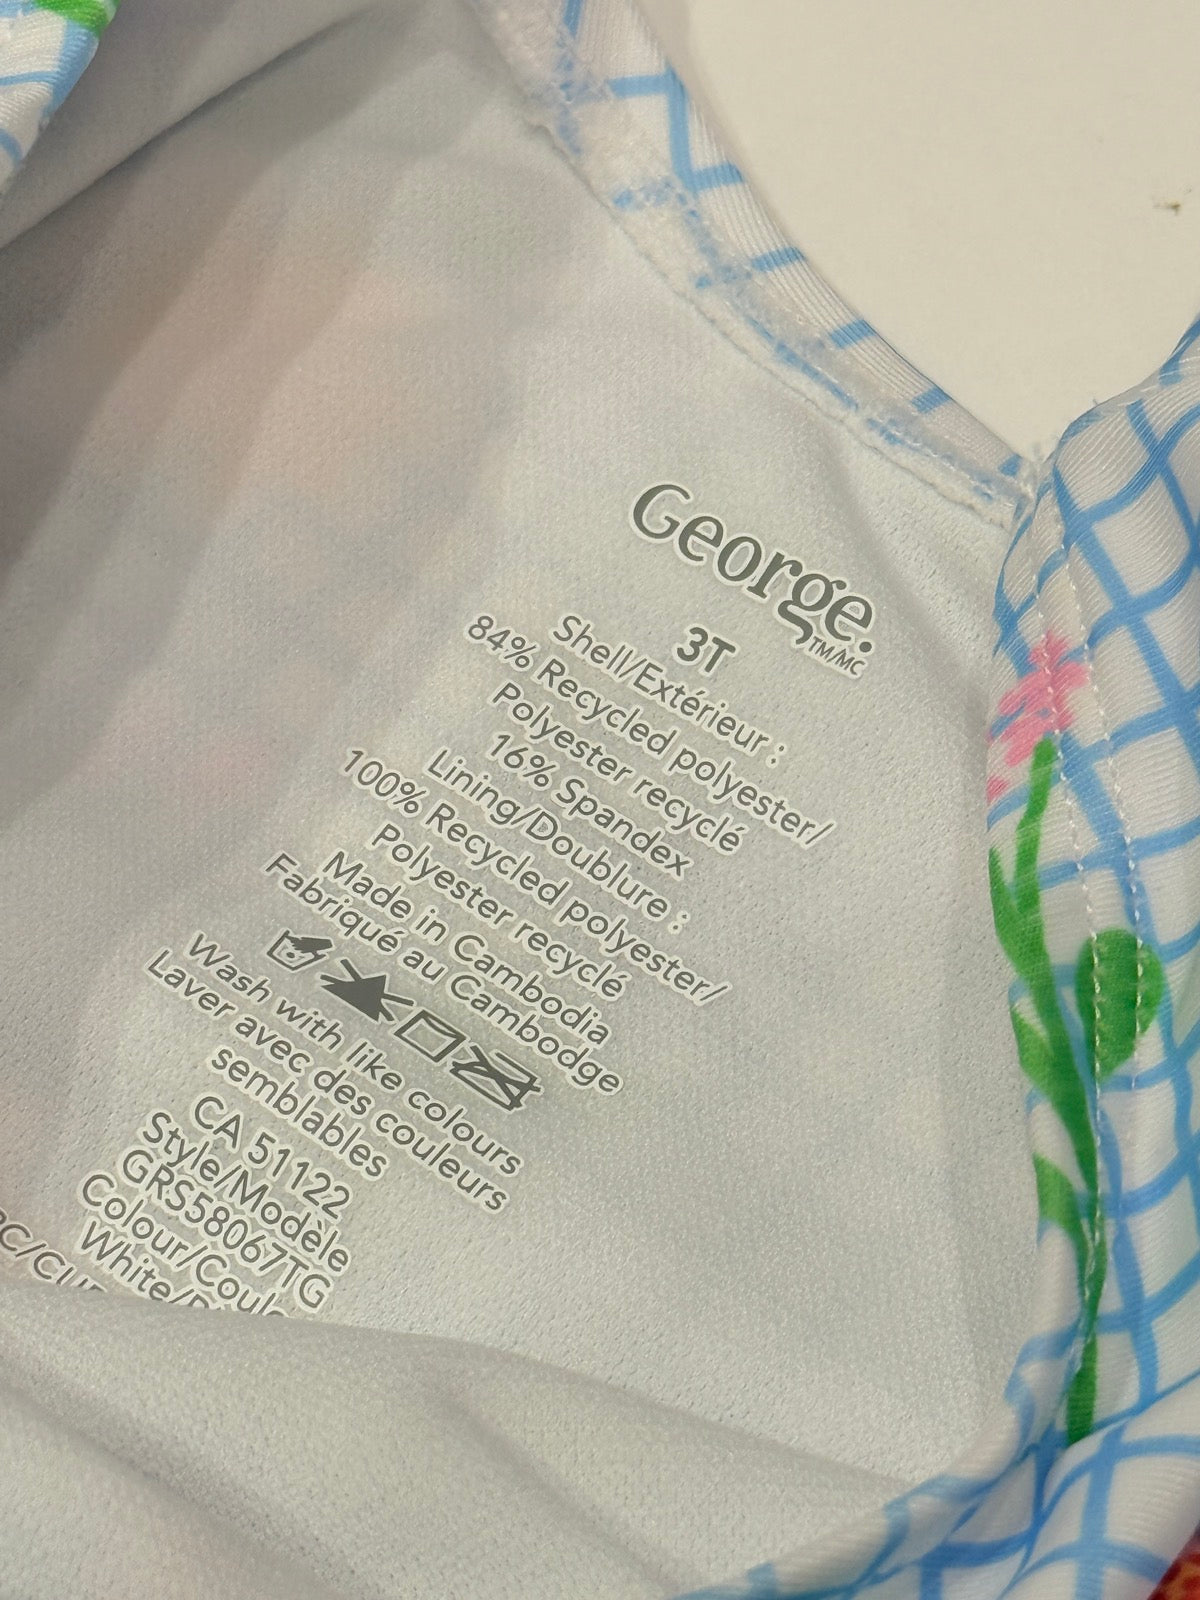 George.
TM/MC
3T
Shell/Extérieur :
84% Recycled polyester/
Polyester recyclé
16% Spandex
Lining/Doublure :
100% Recycled polyester/
Polyester recyclé
Made in Cambodia
Fabriqué au Cambodge
Wash with like colours
Laver avec des couleurs
semblables
CA 51122
Style/Modèle
GRS58067TG
Colour/Coul
White/